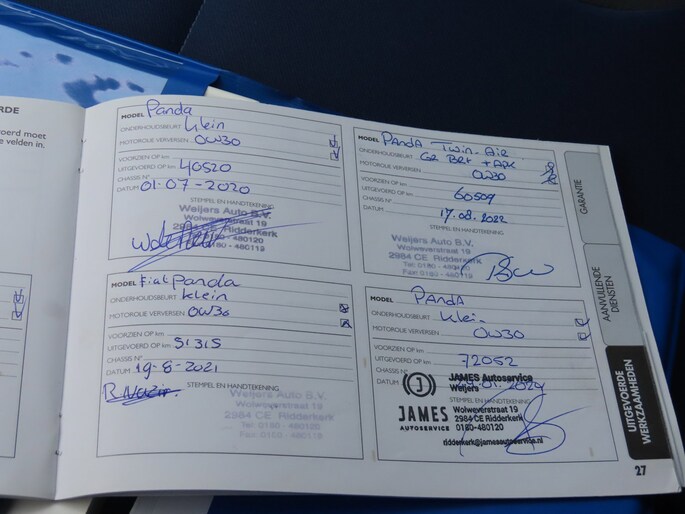 RDE
oerd moet
e velden in.
MODEL Panda
ONDERHOUDSBEURT klein
MOTOROLIE VERVERSEN 0W30
VOORZIEN OP km
UITGEVOERD OP km 40520
CHASSIS N°
DATUM 01-07-2020
STEMPEL EN HANDTEKENING
Weijers Auto B.V.
Wolweverstraat 19
2984 CE Ridderkerk
0180 - 480120
MODEL Fiat Panda
ONDERHOUDSBEURT klein
MOTOROLIE VERVERSEN 0W30
VOORZIEN OP km
UITGEVOERD OP km 51315
CHASSIS N°
DATUM 19-8-2021
STEMPEL EN HANDTEKENING
Weijers Auto B.V.
Wolweverstraat 19
2984 CE Ridderkerk
Tel: 0180 - 480120
MODEL PANDA Twin-Air
ONDERHOUDSBEURT GR BRT + APK
MOTOROLIE VERVERSEN 0W30
VOORZIEN OP km
UITGEVOERD OP km 60509
CHASSIS N°
DATUM 17.08.2022
STEMPEL EN HANDTEKENING
Weijers Auto B.V.
Wolweverstraat 19
2984 CE Ridderkerk
Tel: 0180 - 480120
MODEL PANDA
ONDERHOUDSBEURT Klein
MOTOROLIE VERVERSEN 0W30
VOORZIEN OP km
UITGEVOERD OP km 72052
CHASSIS N°
DATUM 01.2024
JAMES Autoservice
Weijers
STEMPEL EN HANDTEKENING
Wolweverstraat 19
2984 CE Ridderkerk
0180-480120
ridderkerk@jamesautoservice.nl
JAMES
AUTOSERVICE
GARANTIE
AANVULLENDE
DIENSTEN
UITGEVOERDE
WERKZAAMHEDEN
27